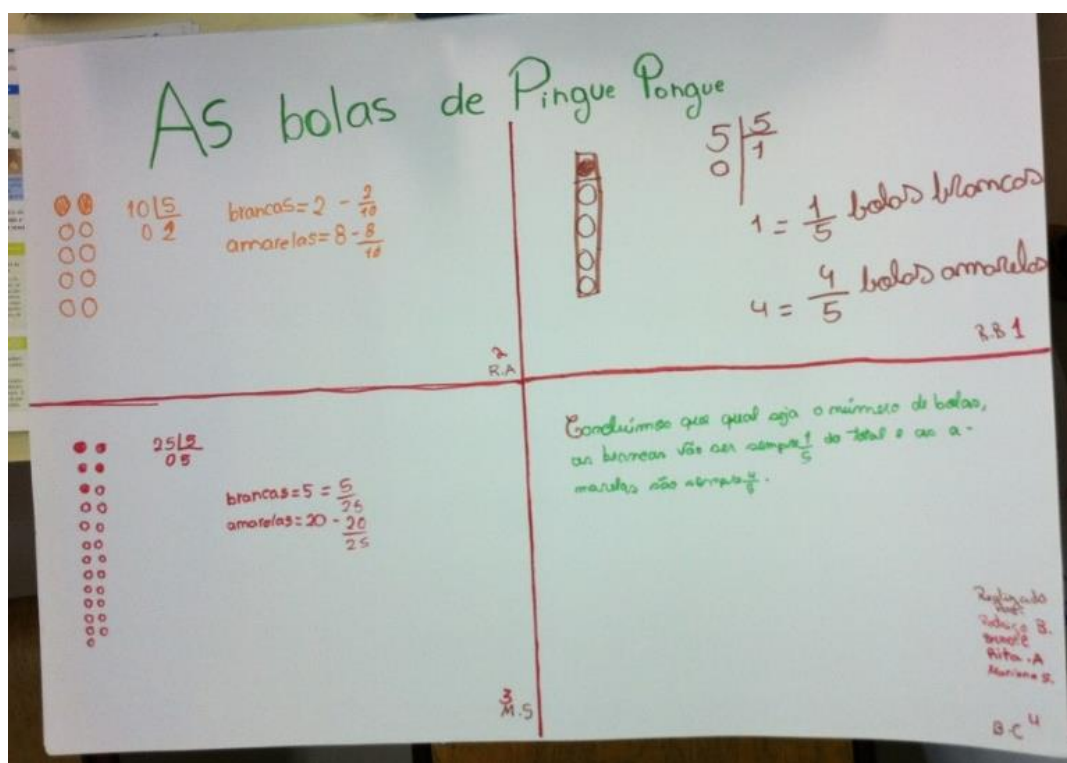 As bolas de Pingue Pongue
10 5
0 2
brancas=2 - 2/10
amarelas=8 - 8/10
2
R.A
5 5
0 1
1 = 1/5 bolas brancas
4 = 4/5 bolas amarelas
R.B 1
25 5
05
brancas=5 = 5/25
amarelas=20 - 20/25
3
M.S
Concluímos que qual seja o número de bolas,
as brancas vão ser sempre 1/5 do total e as a-
marelas são sempre 4/5.
Realizado
por:
Rodrigo B.
Rita .A
Mariana S.
B.C 4